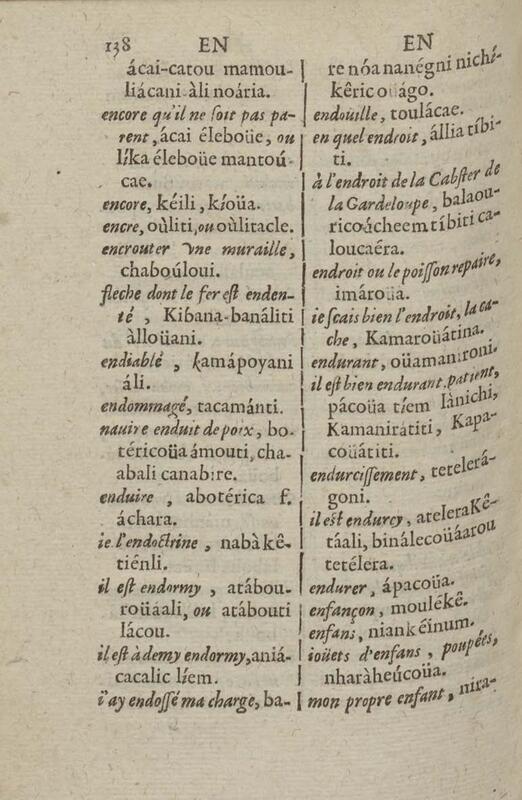 138 EN
ácai-catou mamou-
liácani-àli noária.
encore qu'il ne soit pas pa-
rent, ácai éleboüe, ou
líka éleboüe mantoú-
cae.
encore, kéili, kíoüa.
encre, oùliti, ou oùlitacle.
encrouter vne muraille,
chaboúloui.
fleche dont le fer est enden-
té, Kibana-banáliti
àlloüani.
endiablé, kamápoyani
áli.
endommagé, tacamánti.
nauire enduit de poix, bo-
téricoüa ámouti, cha-
abali canabire.
enduire, abotérica f.
áchara.
ie l'endoctrine, nabàkê-
tiénli.
il est endormy, atábou-
roüáali, ou atábouti
lácou.
il est à demy endormy, aniá-
cacalic líem.
i'ay endossé ma charge, ba-
EN
re nóa nanégni nichí-
kêric oüágo.
endoüille, toulácae.
en quel endroit, állia tíbi-
ti.
à l'endroit de la Cabster de
la Gardeloupe, balaou-
ricoácheem tíbiti ca-
loucaéra.
endroit ou le poisson repaire,
imároüa.
ie scais bien l'endroit, la ca-
che, Kamaroüátina.
endurant, oüamanironi.
il est bien endurant, patient,
pácoüa tíem Iànichi,
Kamanirátiti, Kapa-
coüátiti.
endurcissement, tetelerá-
goni.
il est endurcy, ateleraKê-
táali, binálecoüáarou
tetélera.
endurer, ápacoüa.
enfançon, mouléké.
enfans, niankéinum.
ioüets d'enfans, poupées,
nharàheúcoüa.
mon propre enfant, nira-